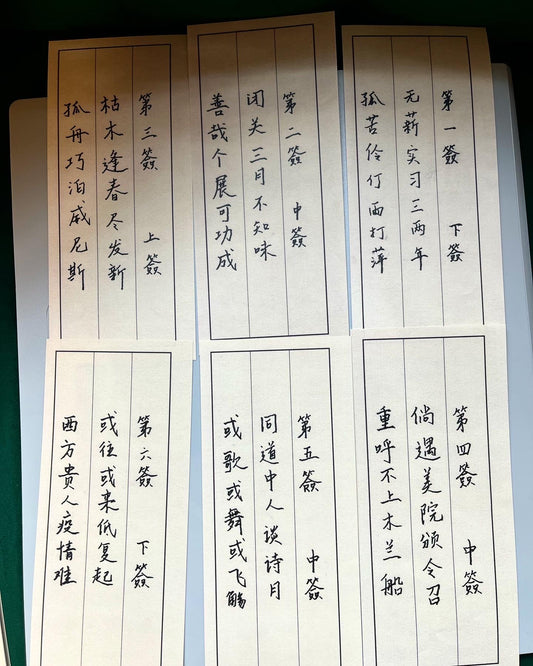 第一簽 下簽
无薪实习三两年
孤苦伶仃雨打萍
第二簽 中簽
闭关三月不知味
善哉个展可功成
第三簽 上簽
枯木逢春尽发新
孤舟巧泊威尼斯
第四簽 中簽
倘遇美院颁令召
重呼不上木兰船
第五簽 中簽
同道中人谈诗月
或歌或舞或飞觞
第六簽 下簽
或往或来低复起
西方貴人疫情难